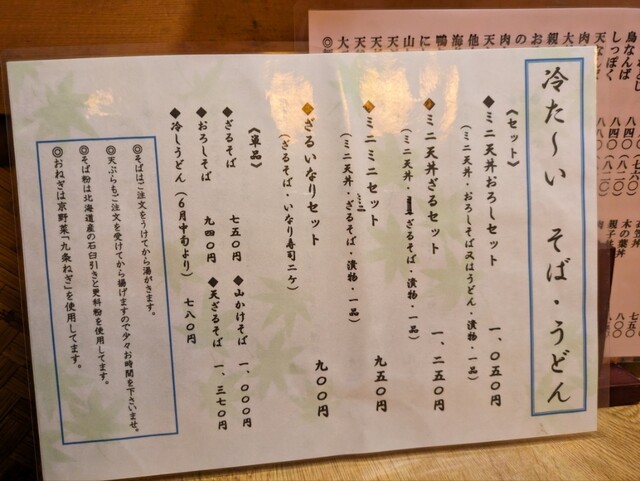 冷た～い そば・うどん
《セット》
◆ミニ天丼おろしセット 一、〇五〇円
（ミニ天丼・おろしそば又はうどん・漬物・一品）
◆ミニ天丼ざるセット 一、二五〇円
（ミニ天丼・ざるそば・漬物・一品）
◆ミニミニセット 九五〇円
（ミニ天丼・ミニざるそば・漬物・一品）
◆ざるいなりセット 九〇〇円
（ざるそば・いなり寿司二ケ）
《単品》
◆ざるそば 七五〇円 ◆山かけそば 一、〇〇〇円
◆おろしそば 九四〇円 ◆天ざるそば 一、三七〇円
◆冷しうどん（６月中旬より） 七八〇円
◎そばはご注文をうけてから湯がきます。
◎天ぷらもご注文を受けてから揚げますので少々お時間を下さいませ。
◎そば粉は北海道産の石臼引きと更科粉を使用してます。
◎おねぎは京野菜「九条ねぎ」を使用してます。
鳥なんば
しっぽく
天なんば
木の葉丼